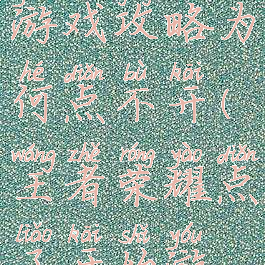 游戏攻略为
hé diǎn bù kāi
何点不开(
wáng zhě róng yào diǎn
王者荣耀点
liǎo kāi shǐ yóu